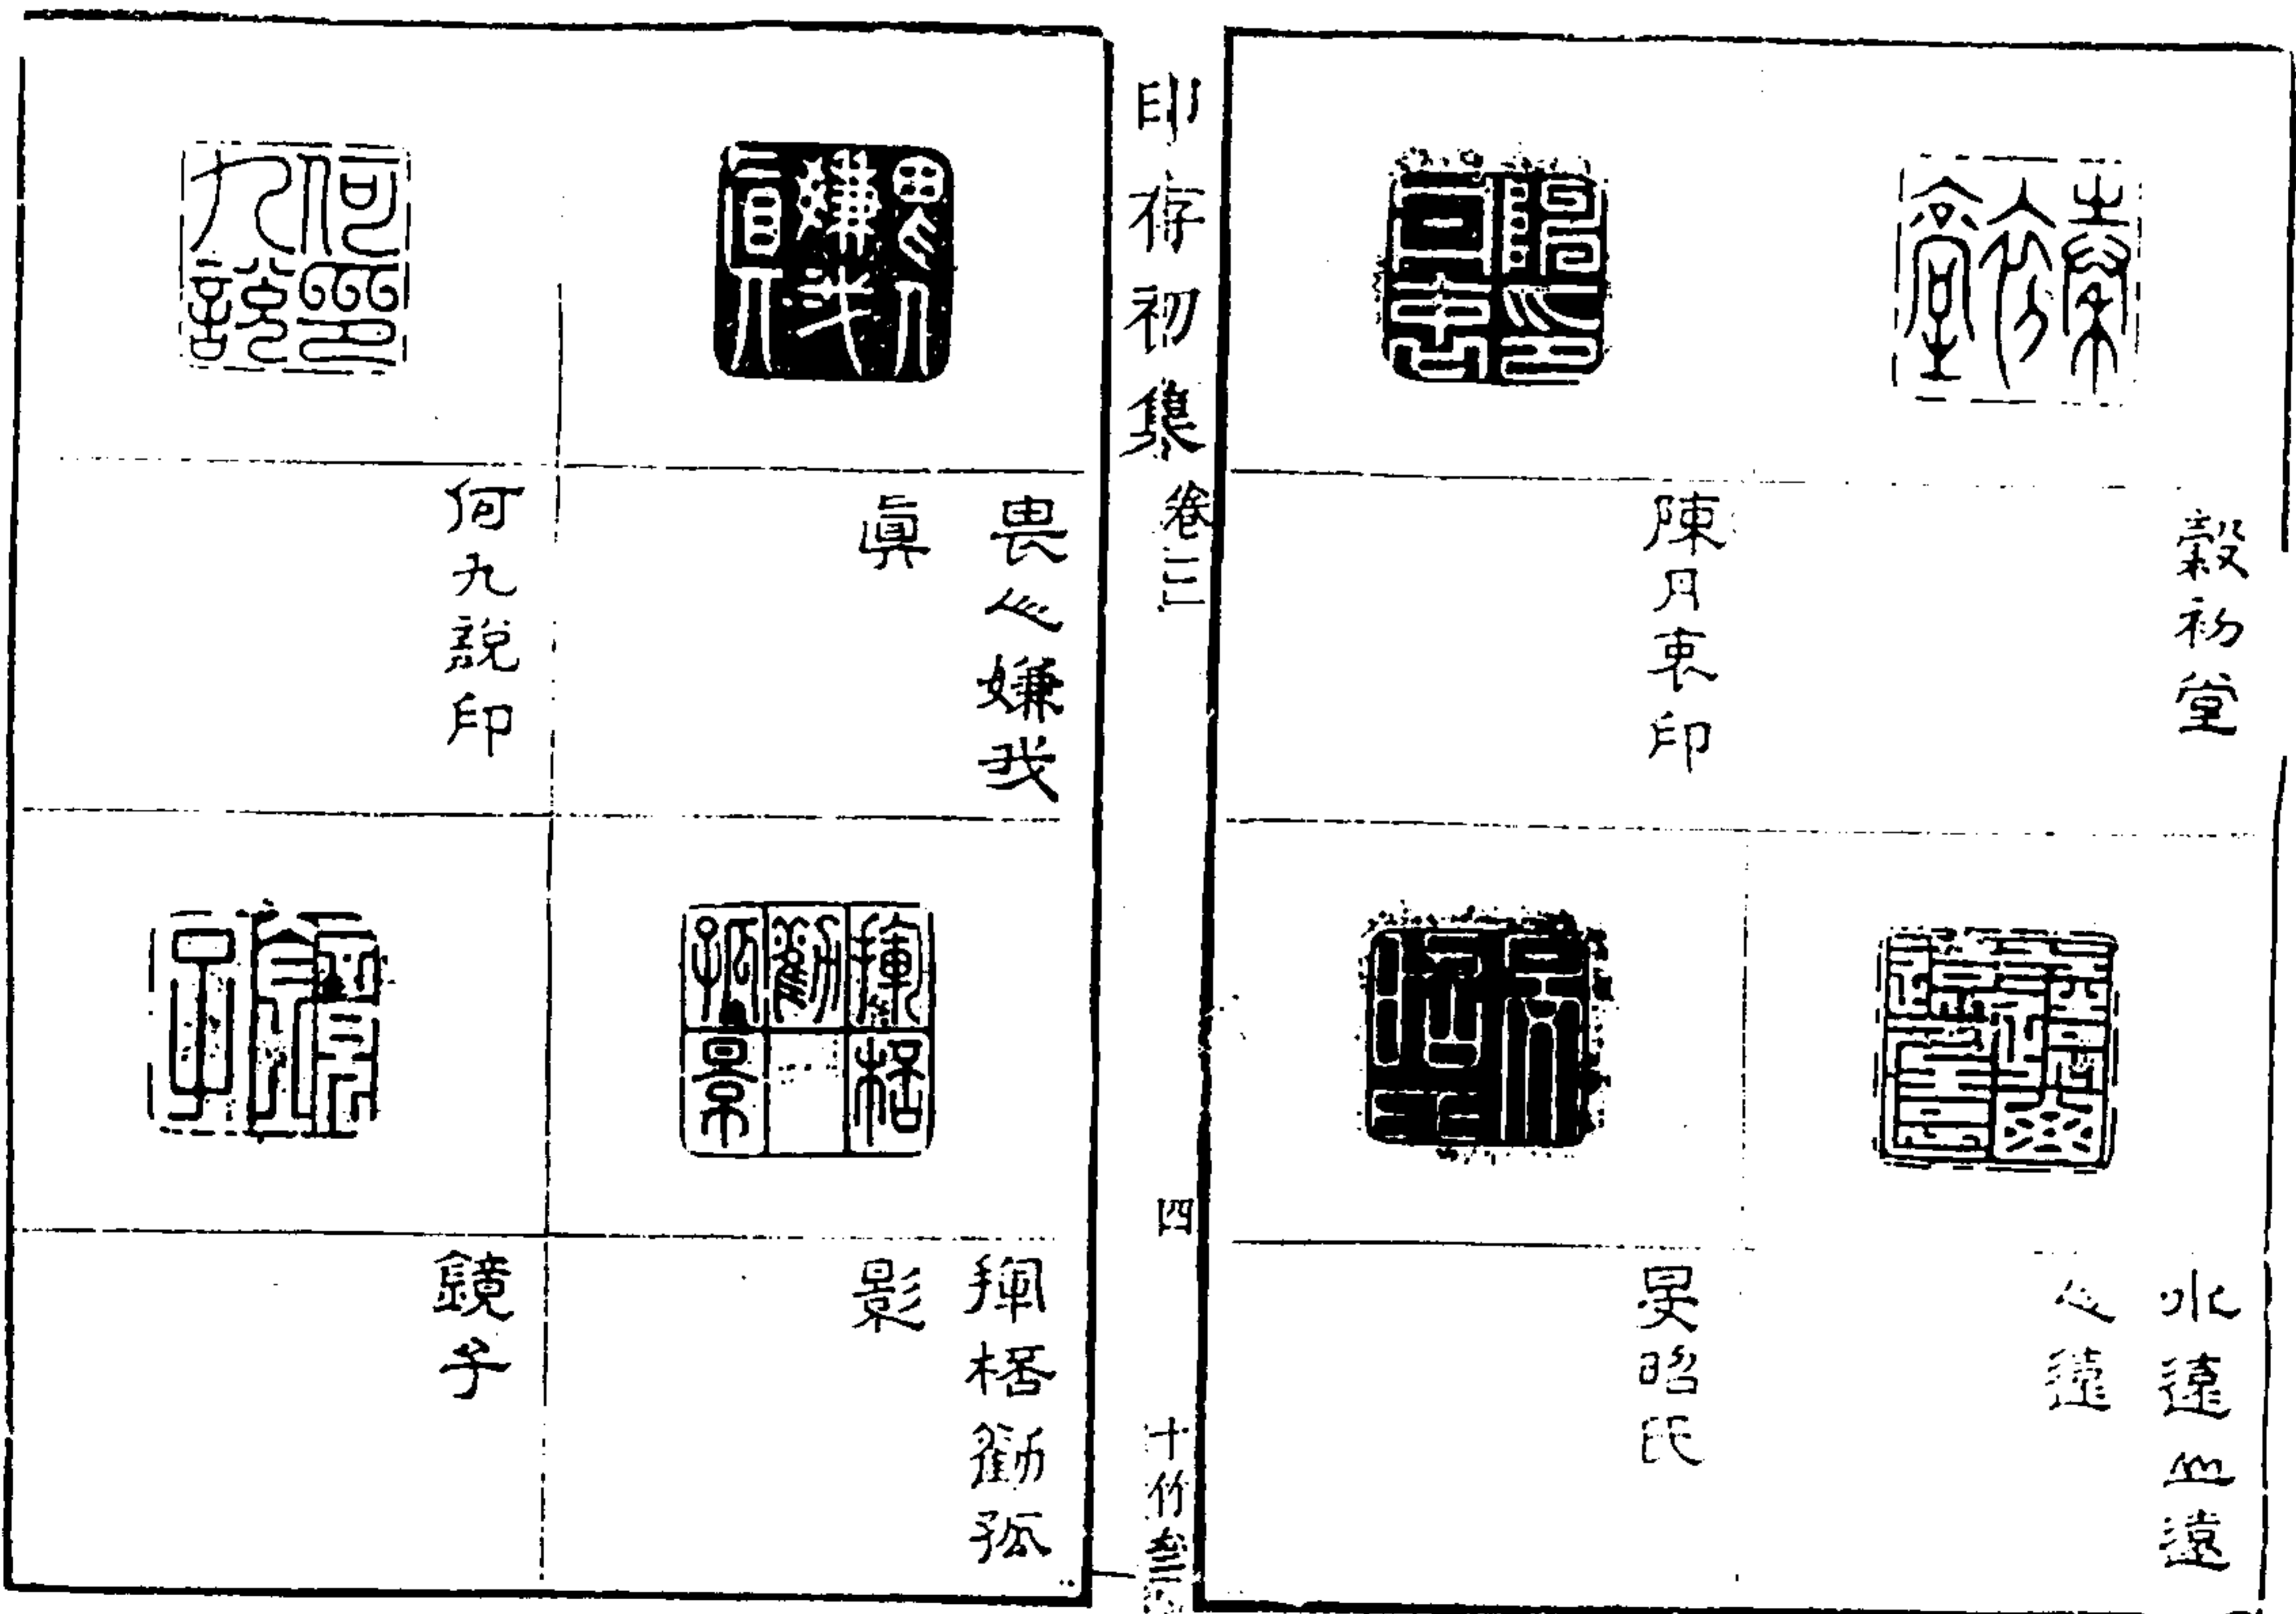 穀初堂
陳丹衷印
水遠山遠
人遠
旻昭氏
印存初集 卷
四
十竹
畏人嫌我
眞
何九說印
揮桮勸孤
影
鏡子